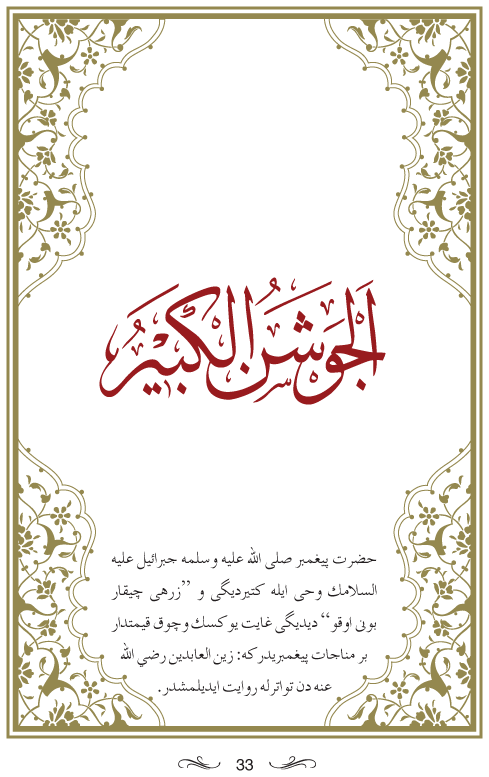 اَلْجَوْشَنُ الْكَبِيرُ
حضرت پيغمبر صلى الله عليه وسلمه جبرائيل عليه
السلامك وحى ايله كتيرديگى و ’’زرهى چيقار
بونى اوقو‘‘ ديديگى غايت يوكسك وچوق قيمتدار
بر مناجات پيغمبريدركه: زين العابدين رضي الله
عنه دن تواترله روايت ايديلمشدر.
33